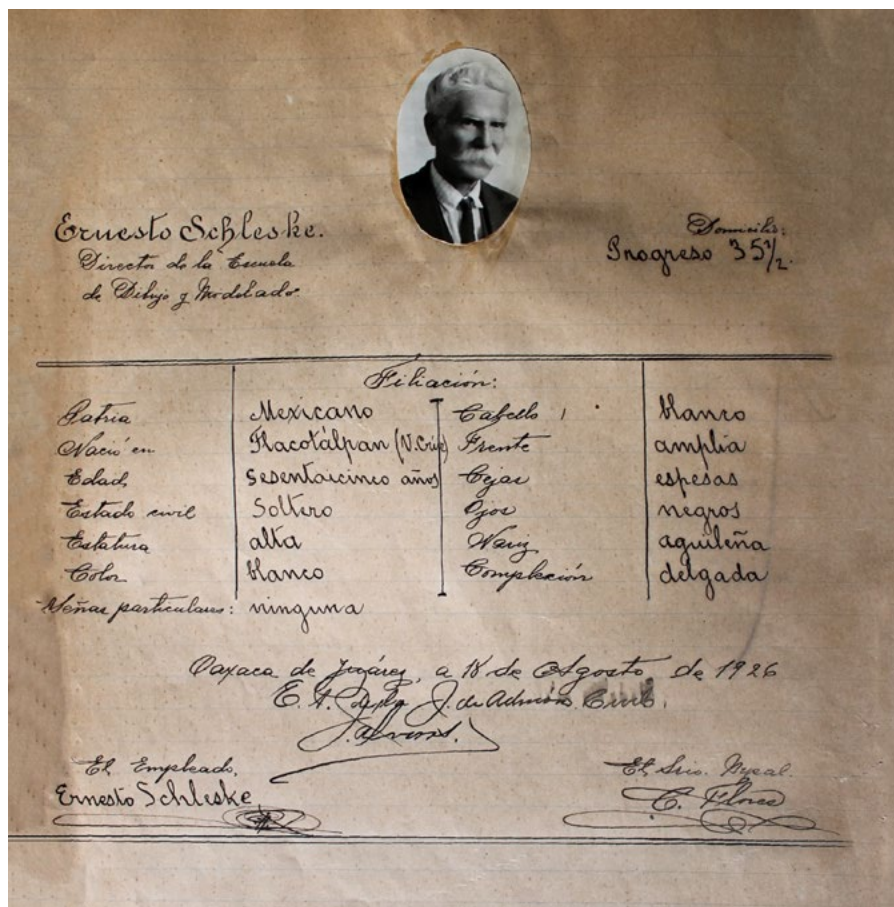 Ernesto Schleske.
Director de la Escuela
de Dibujo y Modelado
Domicilio:
Progreso 35 1/2.
Filiación:
Patria Mexicano Cabello blanco
Nació en Tlacotálpan (V. Cruz) Frente amplia
Edad Sesentaicinco años Cejas espesas
Estado civil Soltero Ojos negros
Estatura alta Nariz aguileña
Color blanco Complexión delgada
Señas particulares: ninguna
Oaxaca de Juárez, a 18 de Agosto de 1926
E. de la J. de Admón. Civil.
El Empleado,
Ernesto Schleske
El Srio. Mpal.
C. Flores